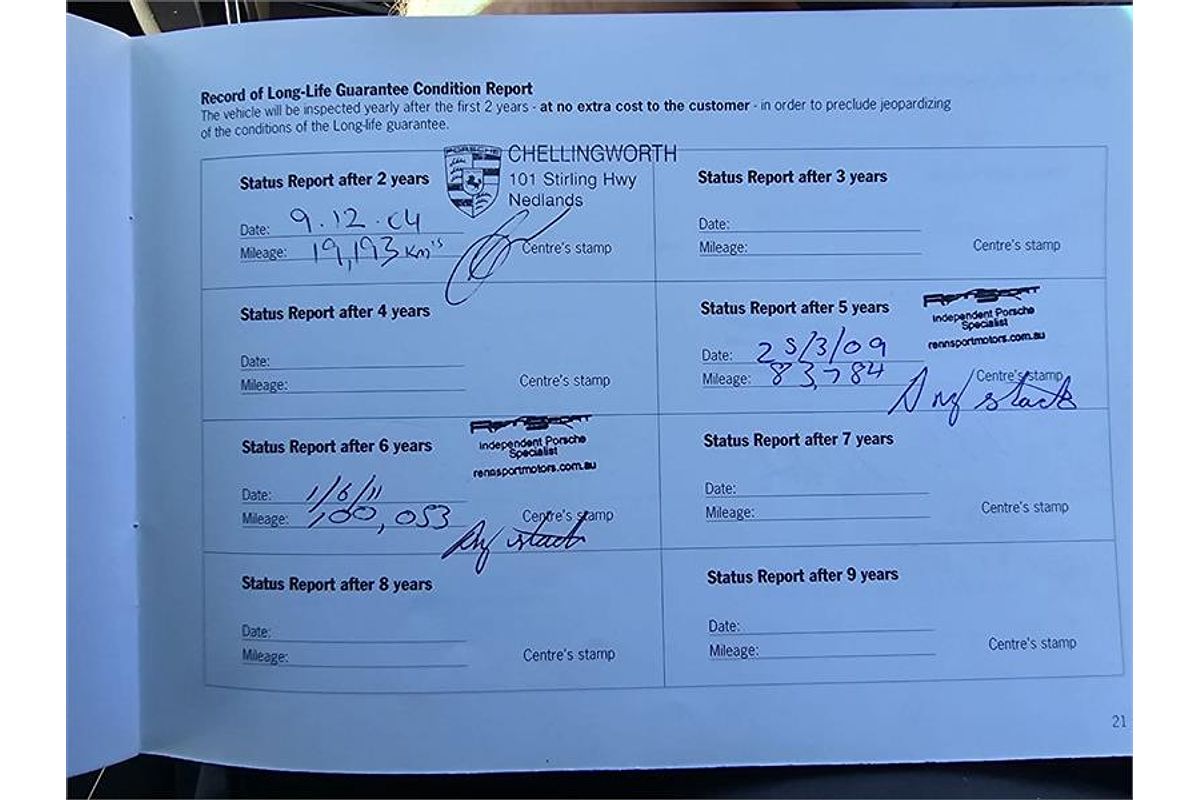 Record of Long-Life Guarantee Condition Report
The vehicle will be inspected yearly after the first 2 years - at no extra cost to the customer - in order to preclude jeopardizing
of the conditions of the Long-life guarantee.
PORSCHE
CHELLINGWORTH
101 Stirling Hwy
Nedlands
Status Report after 2 years
Date: 9.12.04
Mileage: 19,193 Km's
Centre's stamp
Status Report after 3 years
Date:
Mileage:
Centre's stamp
Status Report after 4 years
Date:
Mileage:
Centre's stamp
Status Report after 5 years
RennSport
Independent Porsche
Specialist
rennsportmotors.com.au
Date: 25/3/09
Mileage: 83,784
Centre's stamp
Status Report after 6 years
RennSport
Independent Porsche
Specialist
rennsportmotors.com.au
Date: 1/6/11
Mileage: 100,053
Centre's stamp
Status Report after 7 years
Date:
Mileage:
Centre's stamp
Status Report after 8 years
Date:
Mileage:
Centre's stamp
Status Report after 9 years
Date:
Mileage:
Centre's stamp
21